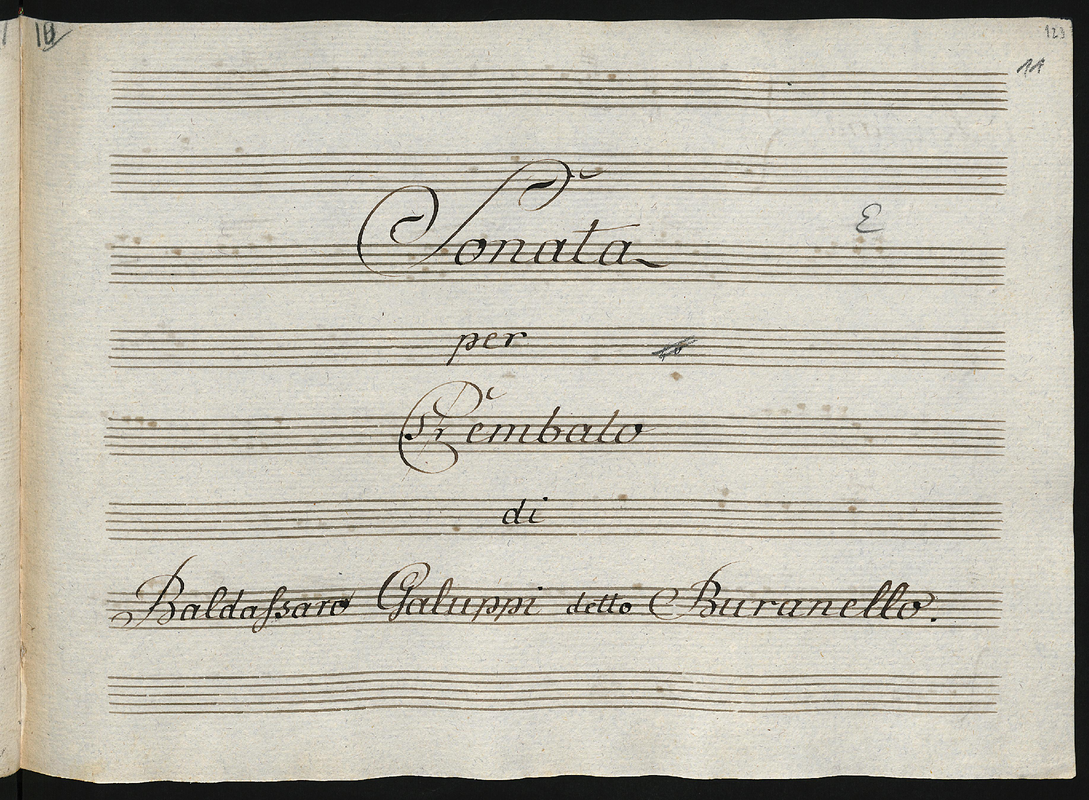 10
123
11
Sonata
E
per
Cembalo
di
Baldassaro Galuppi detto Buranello.